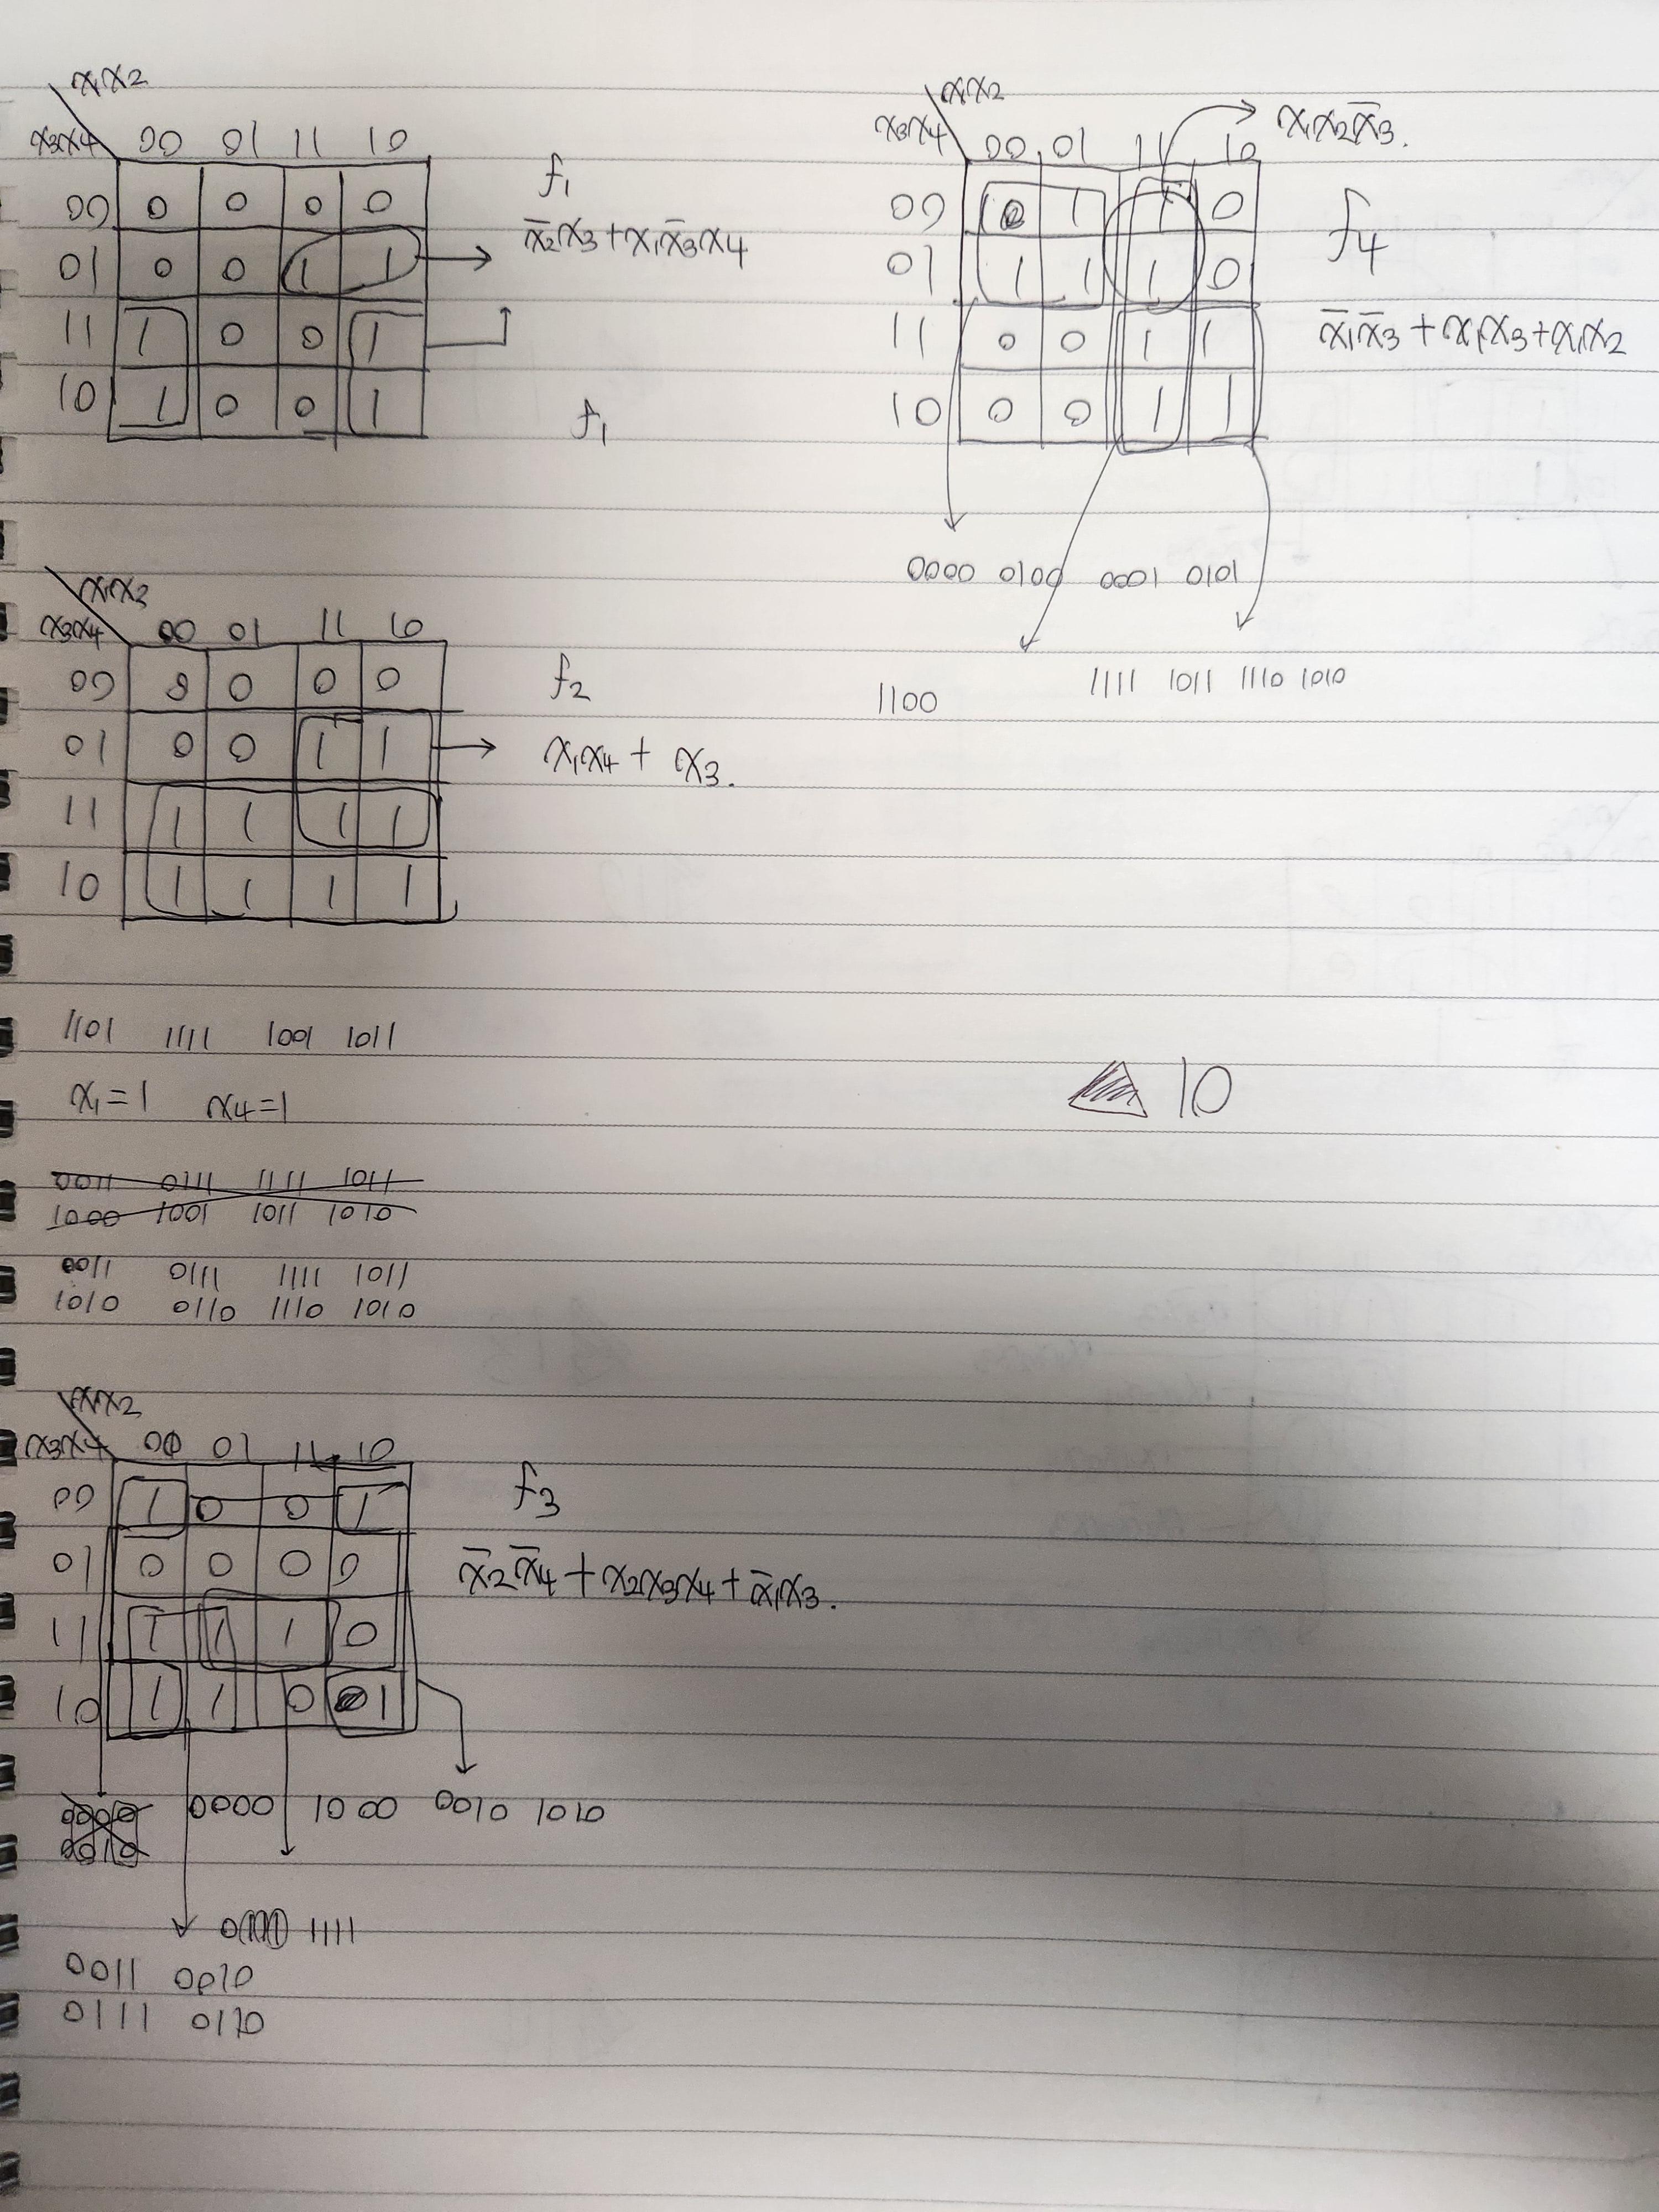 x₁x₂
x₃x₄ 00 01 11 10
00 0 0 0 0
01 0 0 1 1
11 1 0 0 1
10 1 0 0 1
f₁
x̅₂x₃+x₁x̅₃x₄
f₁
x₁x₂
x₃x₄ 00 01 11 10
00 0 1 1 0
01 1 1 1 0
11 0 0 1 1
10 0 0 1 1
x₁x₂x̅₃.
f₄
x̅₁x̅₃+x₁x₃+x₁x₂
0000 0100 0001 0101
1111 1011 1110 1010
1100
x₁x₂
x₃x₄ 00 01 11 10
00 0 0 0 0
01 0 0 1 1
11 1 1 1 1
10 1 1 1 1
f₂
x₁x₄ + x₃.
1101 1111 1001 1011
x₁=1 x₄=1
10
0011 0111 1111 1011
1000 1001 1011 1010
0011 0111 1111 1011
1010 0110 1110 1010
x₁x₂
x₃x₄ 00 01 11 10
00 1 0 0 1
01 0 0 0 0
11 1 1 1 0
10 1 1 0 1
f₃
x̅₂x̅₄+x₂x₃x₄+x̅₁x₃.
0000 1000 0010 1010
1111
0011 0010
0111 0110